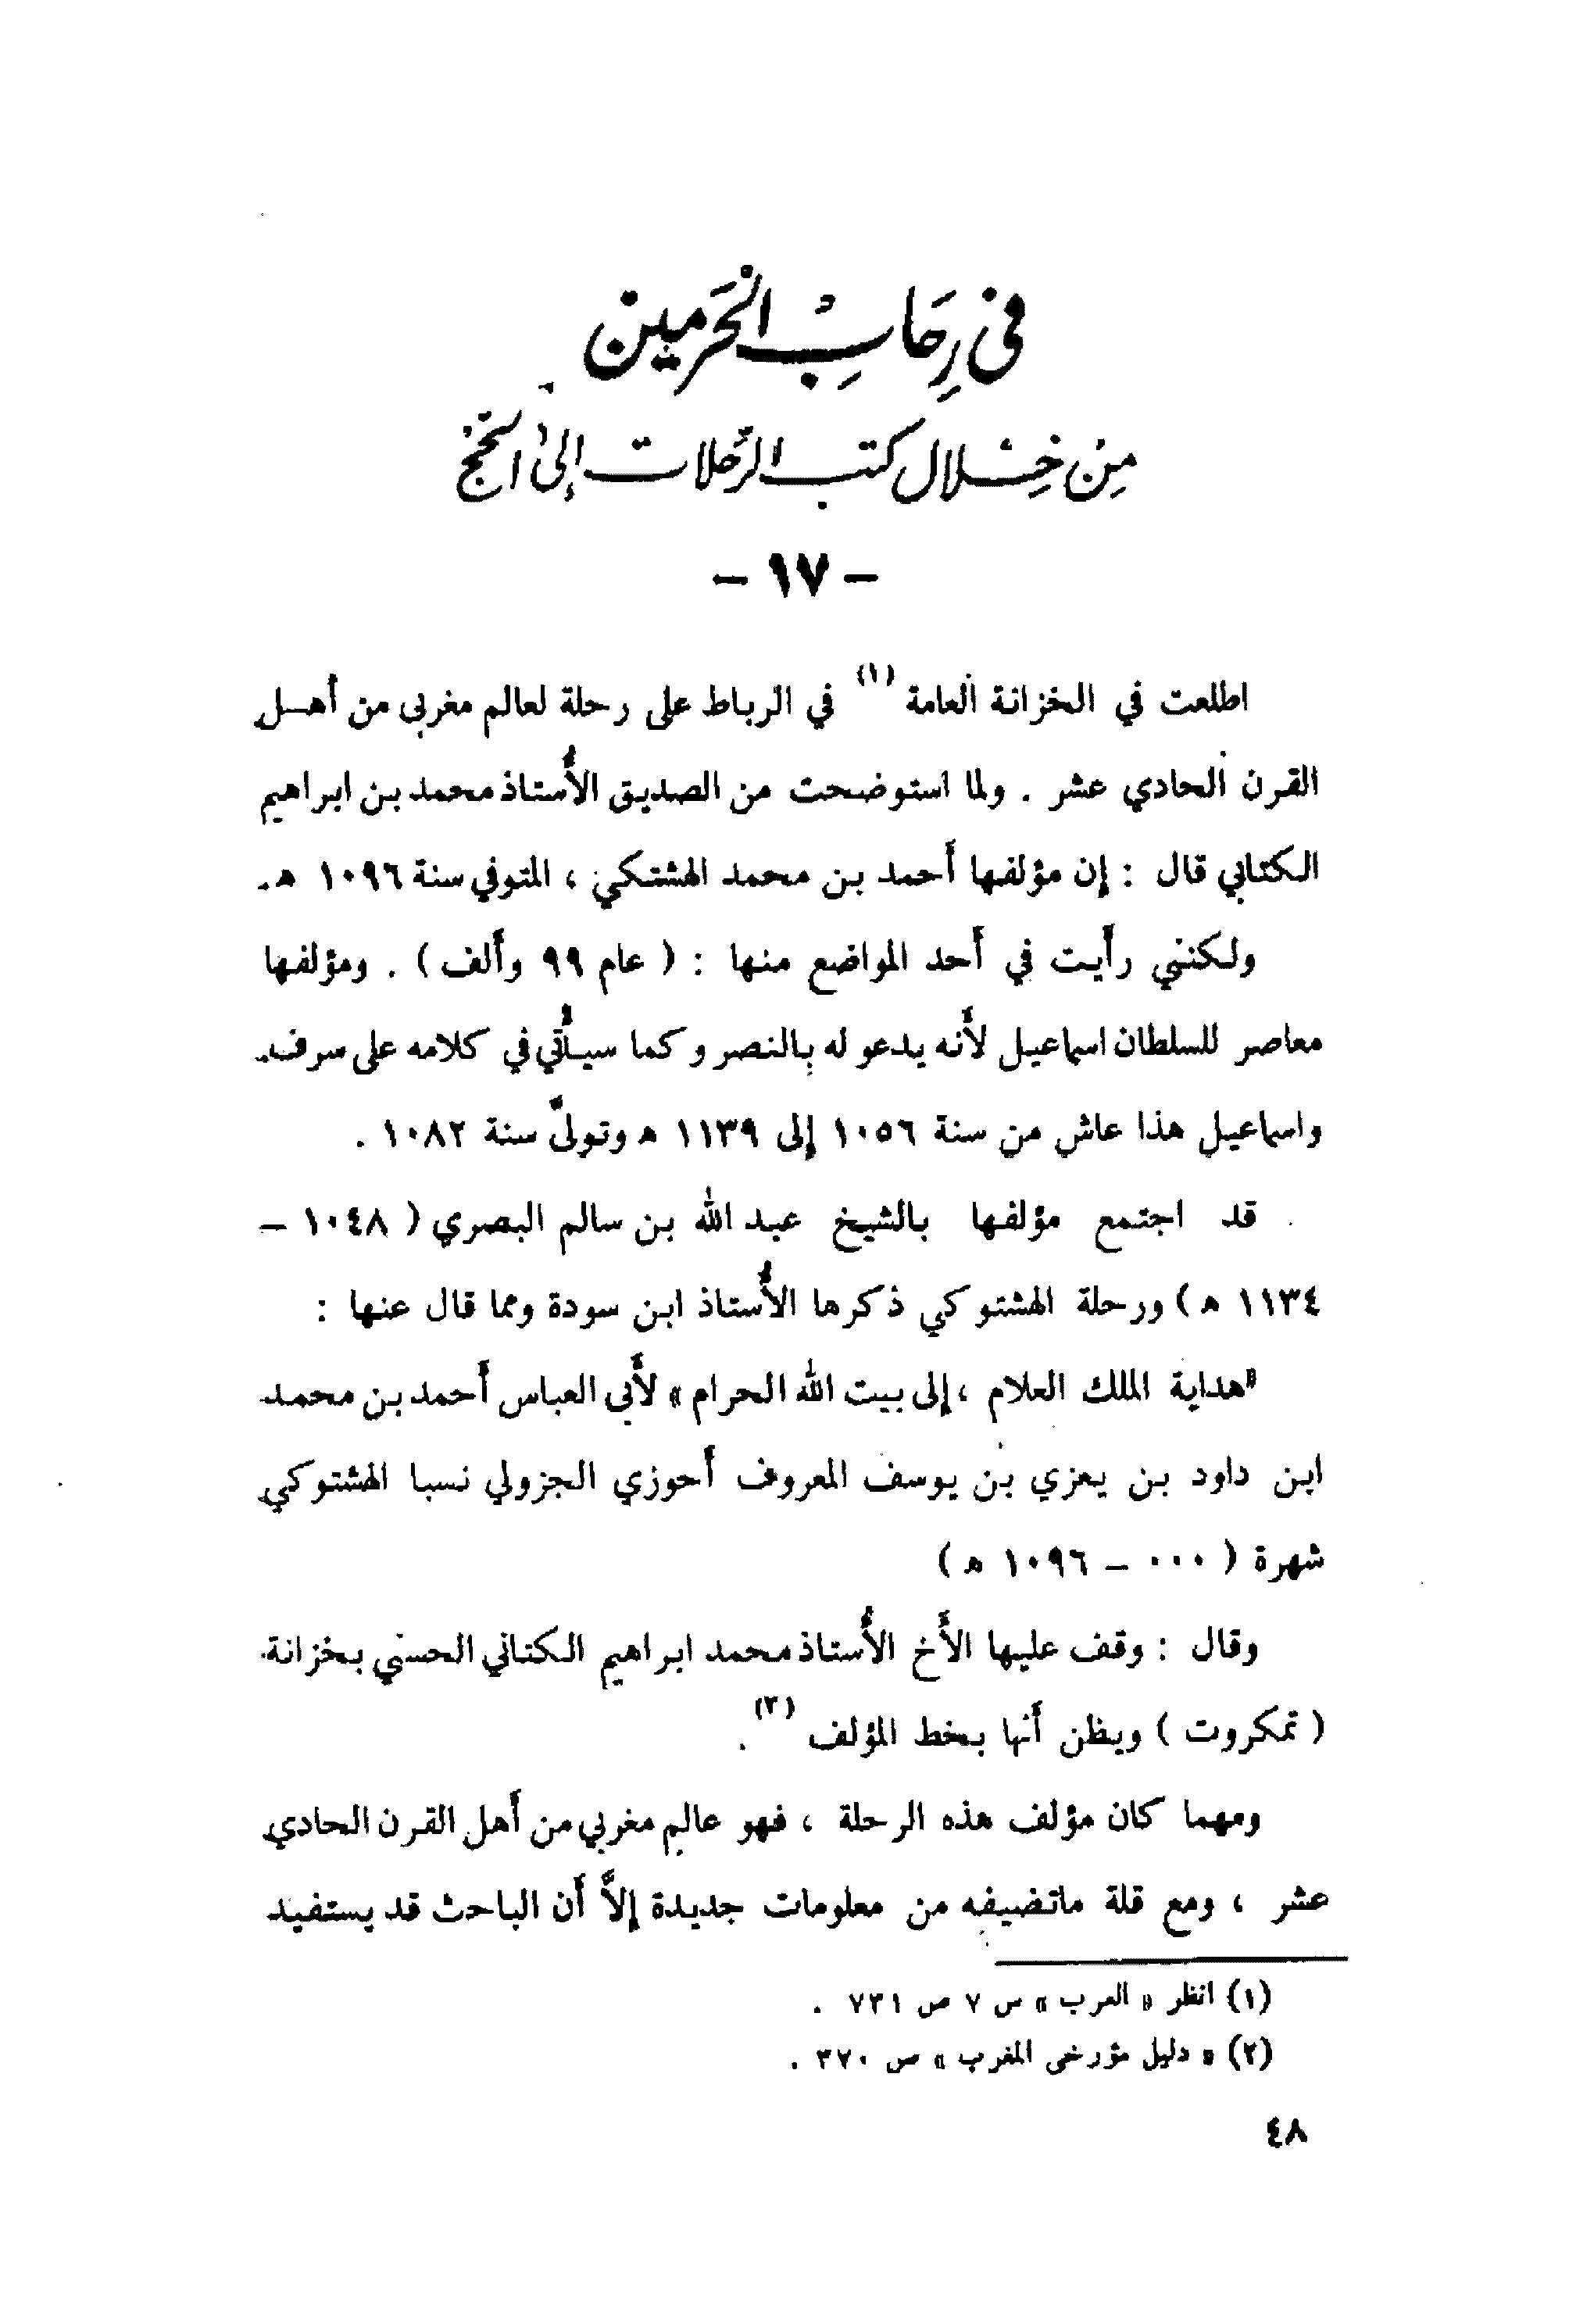 في رِحَابِ الحَرمين
مِن خِلال كتب الرَّحلات إلى الحَج
- ١٧ -
اطلعت في الخزانة العامة (١) في الرباط على رحلة لعالم مغربي من أهل
القرن الحادي عشر . ولما استوضحت من الصديق الأُستاذ محمد بن ابراهيم
الكتابي قال : إن مؤلفها أَحمد بن محمد الهشتكي ، المتوفي سنة ١٠٩٦ ه.
ولكنني رأَيت في أَحد المواضع منها : ( عام ٩٩ وأَلف ) . ومؤلفها
معاصر للسلطان اسماعيل لأَنه يدعو له بالنصر وكما سيأْتي في كلامه على سرف.
واسماعيل هذا عاش من سنة ١٠٥٦ إلى ١١٣٩ ه وتولىَّ سنة ١٠٨٢ .
قد اجتمع مؤلفها بالشيخ عبد الله بن سالم البصري ( ١٠٤٨ –
١١٣٤ ه ) ورحلة الهشتوكي ذكرها الأُستاذ ابن سودة ومما قال عنها :
«هداية الملك العلام ، إلى بيت الله الحرام » لأَبي العباس أَحمد بن محمد
ابن داود بن يعزي بن يوسف المعروف أَحوزي الجزولي نسبا الهشتوكي
شهرة ( ٠٠٠ – ١٠٩٦ ه )
وقال : وقف عليها الأَخ الأُستاذ محمد ابراهيم الكتاني الحسني بخزانة
( تمكروت ) ويظن أَنها بخط المؤلف (٢) .
ومهما كان مؤلف هذه الرحلة ، فهو عالم مغربي من أَهل القرن الحادي
عشر ، ومع قلة ماتضيفه من معلومات جديدة إلاَّ أَن الباحث قد يستفيد
(١) انظر « العرب » س ٧ ص ٧٣١ .
(٢) « دليل مؤرخي المغرب » ص ٣٧٠ .
٤٨